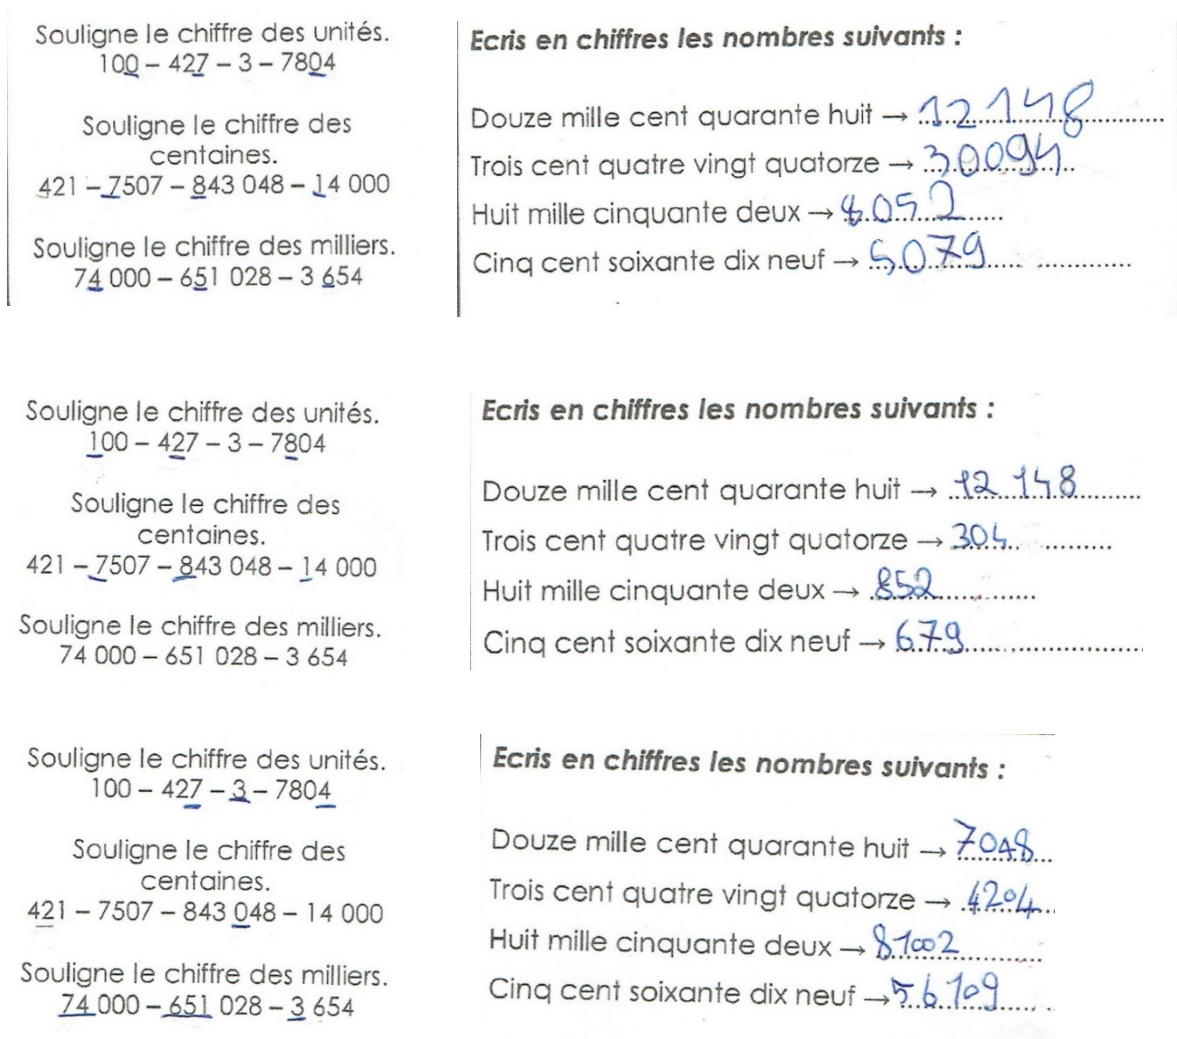 Souligne le chiffre des unités.
100 – 427 – 3 – 7804
Souligne le chiffre des
centaines.
421 – 7507 – 843 048 – 14 000
Souligne le chiffre des milliers.
74 000 – 651 028 – 3 654
Ecris en chiffres les nombres suivants :
Douze mille cent quarante huit → 12 148
Trois cent quatre vingt quatorze → 30094
Huit mille cinquante deux → 8052
Cinq cent soixante dix neuf → 5079
Souligne le chiffre des unités.
100 – 427 – 3 – 7804
Souligne le chiffre des
centaines.
421 – 7507 – 843 048 – 14 000
Souligne le chiffre des milliers.
74 000 – 651 028 – 3 654
Ecris en chiffres les nombres suivants :
Douze mille cent quarante huit → 12 148
Trois cent quatre vingt quatorze → 304
Huit mille cinquante deux → 852
Cinq cent soixante dix neuf → 679
Souligne le chiffre des unités.
100 – 427 – 3 – 7804
Souligne le chiffre des
centaines.
421 – 7507 – 843 048 – 14 000
Souligne le chiffre des milliers.
74 000 – 651 028 – 3 654
Ecris en chiffres les nombres suivants :
Douze mille cent quarante huit → 7048
Trois cent quatre vingt quatorze → 4204
Huit mille cinquante deux → 81002
Cinq cent soixante dix neuf → 56109